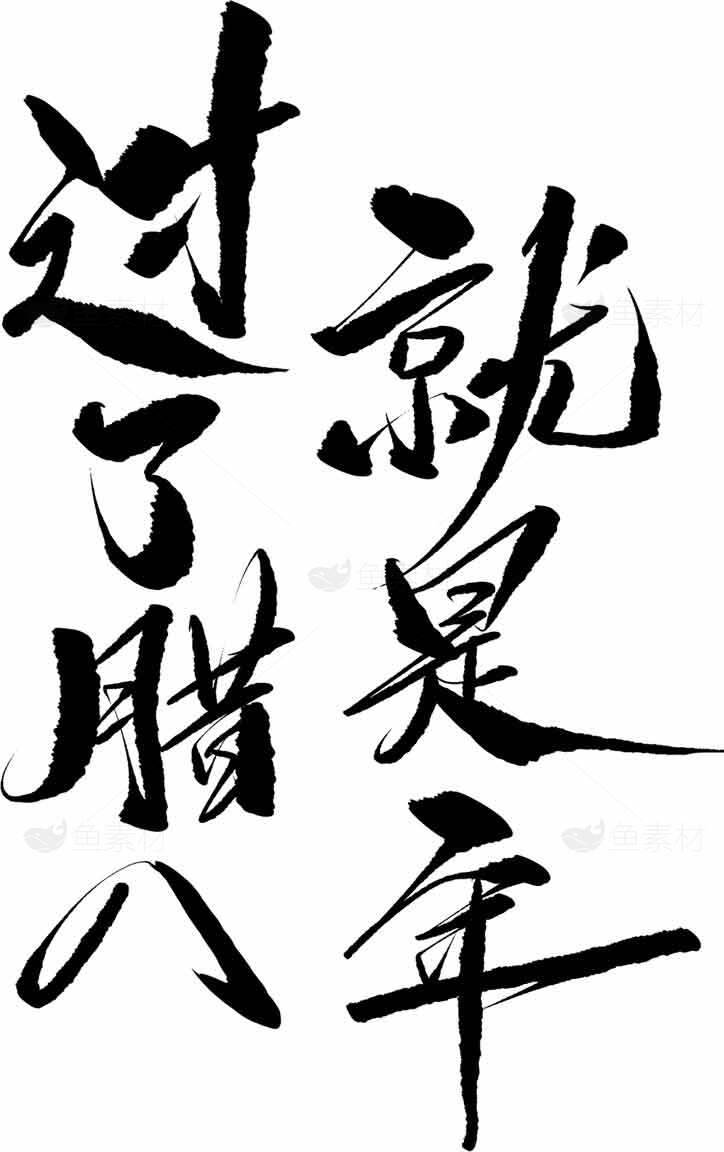 过了腊八
就是年
鱼素材
鱼素材
鱼素材
鱼素材
鱼素材